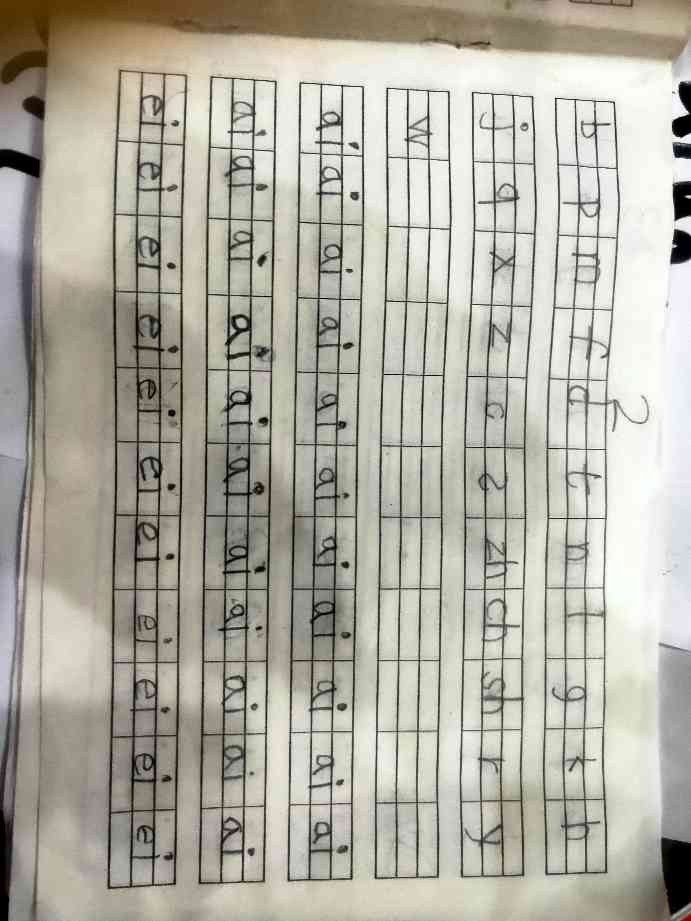 2
b p m f d t n l g k h
j q x z c s zh ch sh r y
w
ai ai ai ai ai ai ai ai ai ai ai
ai ai ai ai ai ai ai ai ai ai ai
ei ei ei ei ei ei ei ei ei ei ei